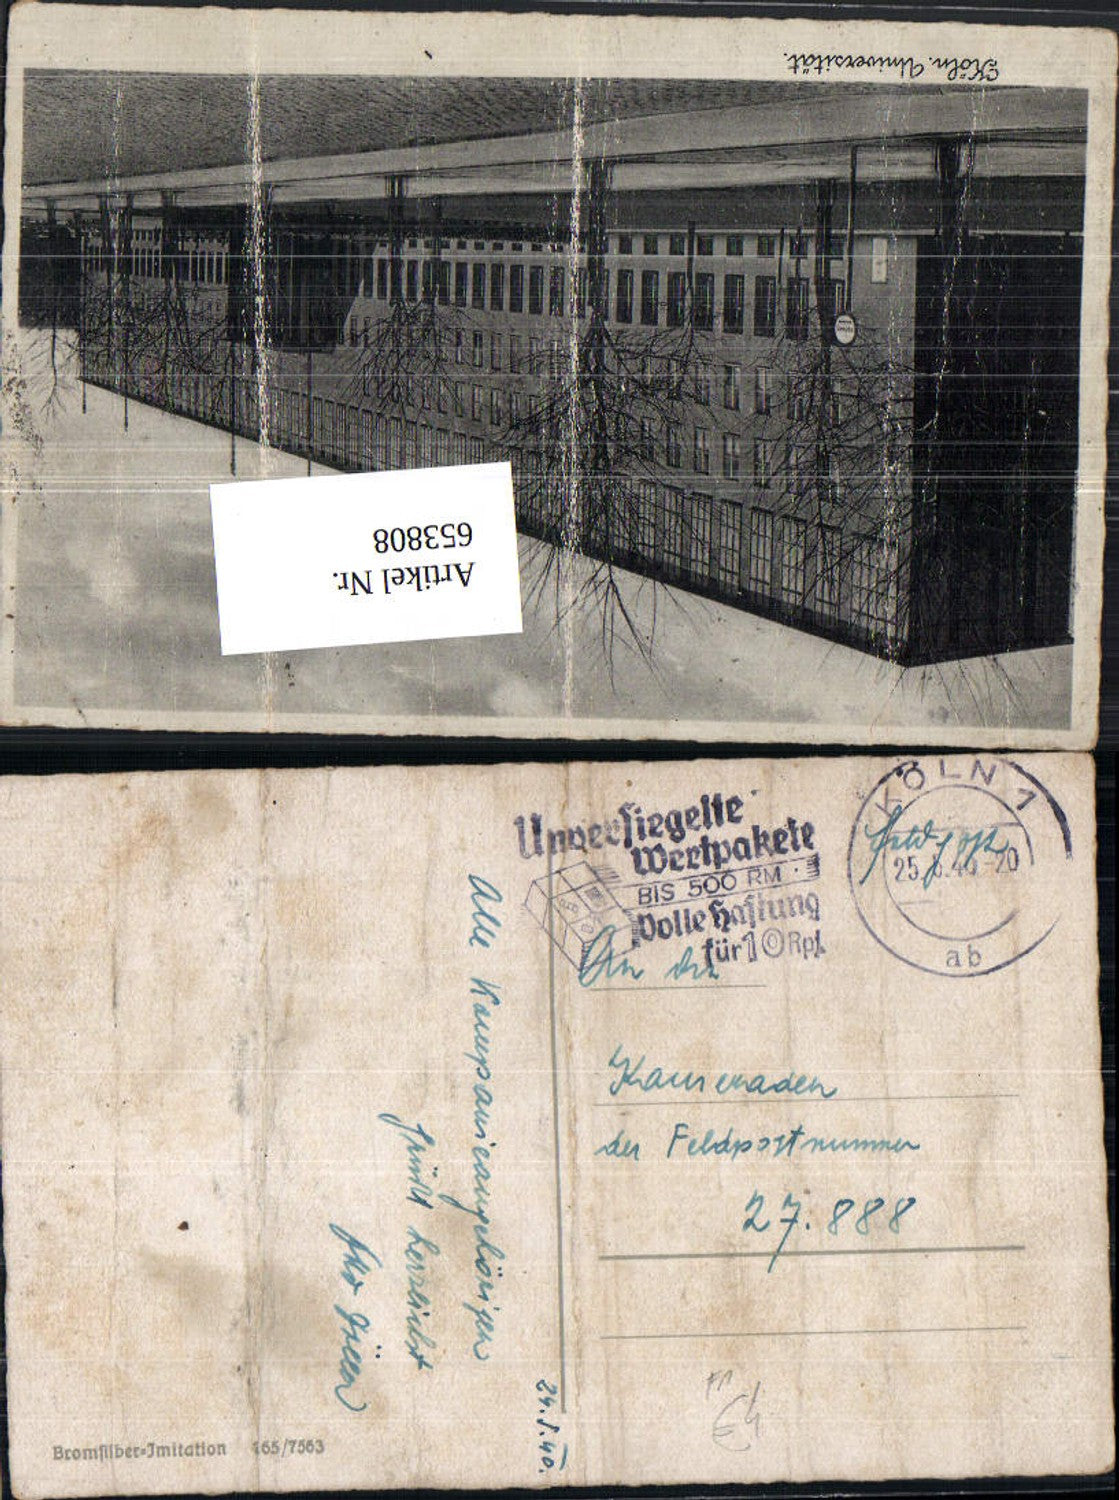 Köln. Universität.
Artikel Nr.
653808
Unversiegelte
Wertpakete
BIS 500 RM
Volle Haftung
für 10 Rpf.
KÖLN 1
Feldpost
25. 40-20
ab
An die
Kameraden
der Feldpostnummer
27.888
Alle Kompanieangehörigen
grüßt herzlichst
24.5.40.
Bromsilber-Imitation 165/7563